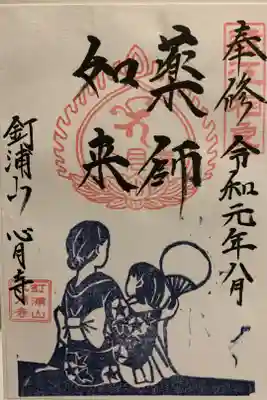 奉修 令和元年八月
薬師
如来
釘浦山 心月寺
釘浦山